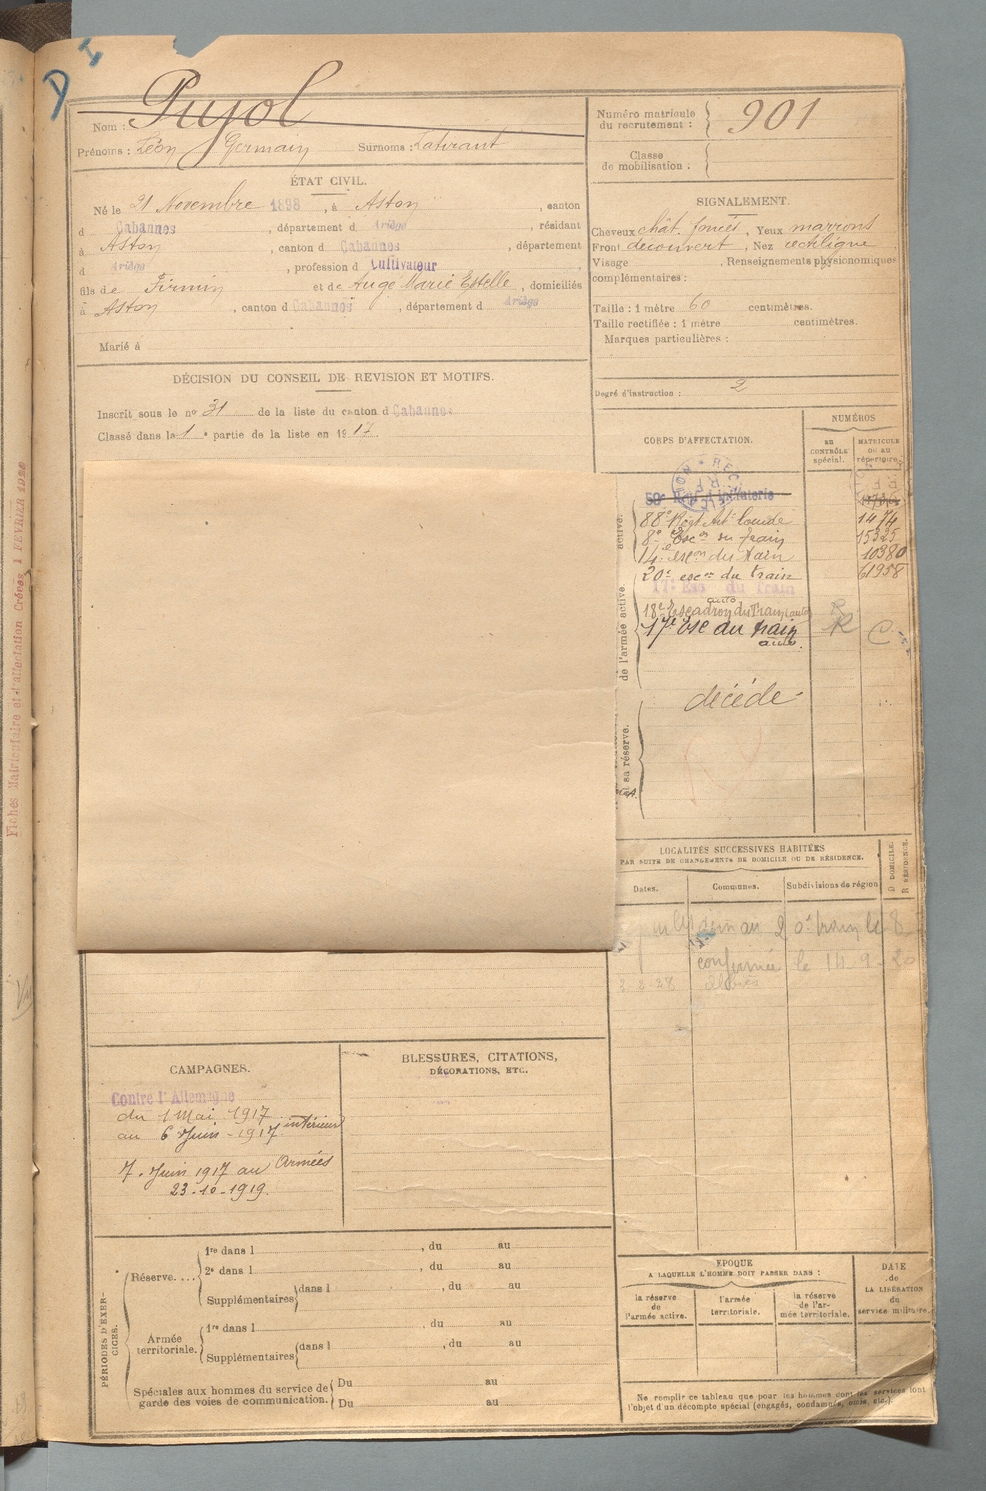 Nom : Pujol
Prénoms : Léon Germain Surnoms :
ÉTAT CIVIL.
Né le 21 Novembre 1898, à Aston, canton
d Cabannes, département d Ariège, résidant
à Aston, canton d Cabannes, département
d Ariège, profession d Cultivateur
fils de Firmin et de Auge Marie Estelle, domiciliés
à Aston, canton d Cabannes, département d Ariège
Marié à
DÉCISION DU CONSEIL DE REVISION ET MOTIFS.
Inscrit sous le no 31 de la liste du canton d Cabannes
Classé dans la 1e partie de la liste en 1917.
Numéro matricule du recrutement : 901
Classe de mobilisation :
SIGNALEMENT.
Cheveux chât. foncés, Yeux marrons
Front découvert, Nez rectiligne
Visage , Renseignements physionomiques
complémentaires :
Taille : 1 mètre 60 centimètres.
Taille rectifiée : 1 mètre centimètres.
Marques particulières :
Degré d'instruction : 2
CORPS D'AFFECTATION.
NUMÉROS
au CONTRÔLE spécial.
MATRICULE ou au répertoire.
59e d'infanterie
88e Régt Art lourde 1474
8e Escon du train 15325
14e escon du train 10380
20e escon du train 61958
17e Esc du Train
18e Escadron du Train auto
17e Esc du train auto. R C
de l'armée active
active.
décédé
sa réserve.
LOCALITÉS SUCCESSIVES HABITÉES
PAR SUITE DE CHANGEMENTS DE DOMICILE OU DE RÉSIDENCE.
Dates. Communes. Subdivisions de région
D DOMICILE. R RÉSIDENCE.
le 8
le 14-9-20
CAMPAGNES.
Contre l'Allemagne
du 1 Mai 1917
au 6 Juin - 1917 intérieur
7. Juin 1917 au Armées
23-10-1919.
BLESSURES, CITATIONS,
DÉCORATIONS, ETC.
PÉRIODES D'EXERCICES.
Réserve....
1re dans l , du au
2e dans l , du au
Supplémentaires dans l , du au
Armée territoriale.
1re dans l , du au
Supplémentaires dans l , du au
Spéciales aux hommes du service de
garde des voies de communication.
Du au
Du au
EPOQUE
A LAQUELLE L'HOMME DOIT PASSER DANS :
la réserve de l'armée active.
l'armée territoriale.
la réserve de l'armée territoriale.
DATE de LA LIBÉRATION du service militaire.
Ne remplir ce tableau que pour les hommes dont les services font
l'objet d'un décompte spécial (engagés, condamnés, omis, etc.).